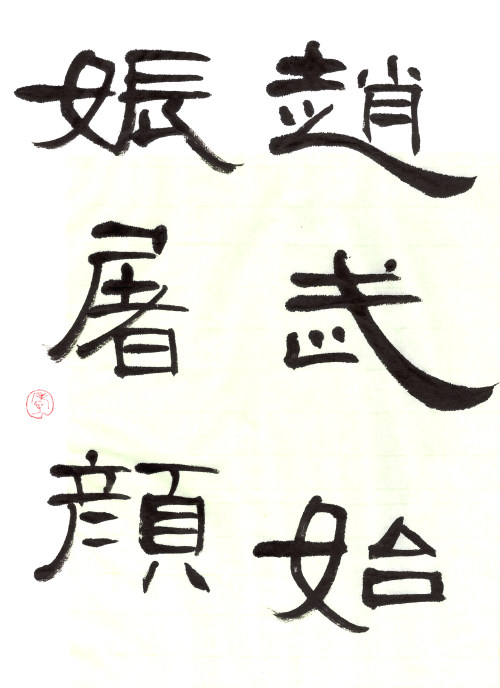 趙武始
娠屠顏